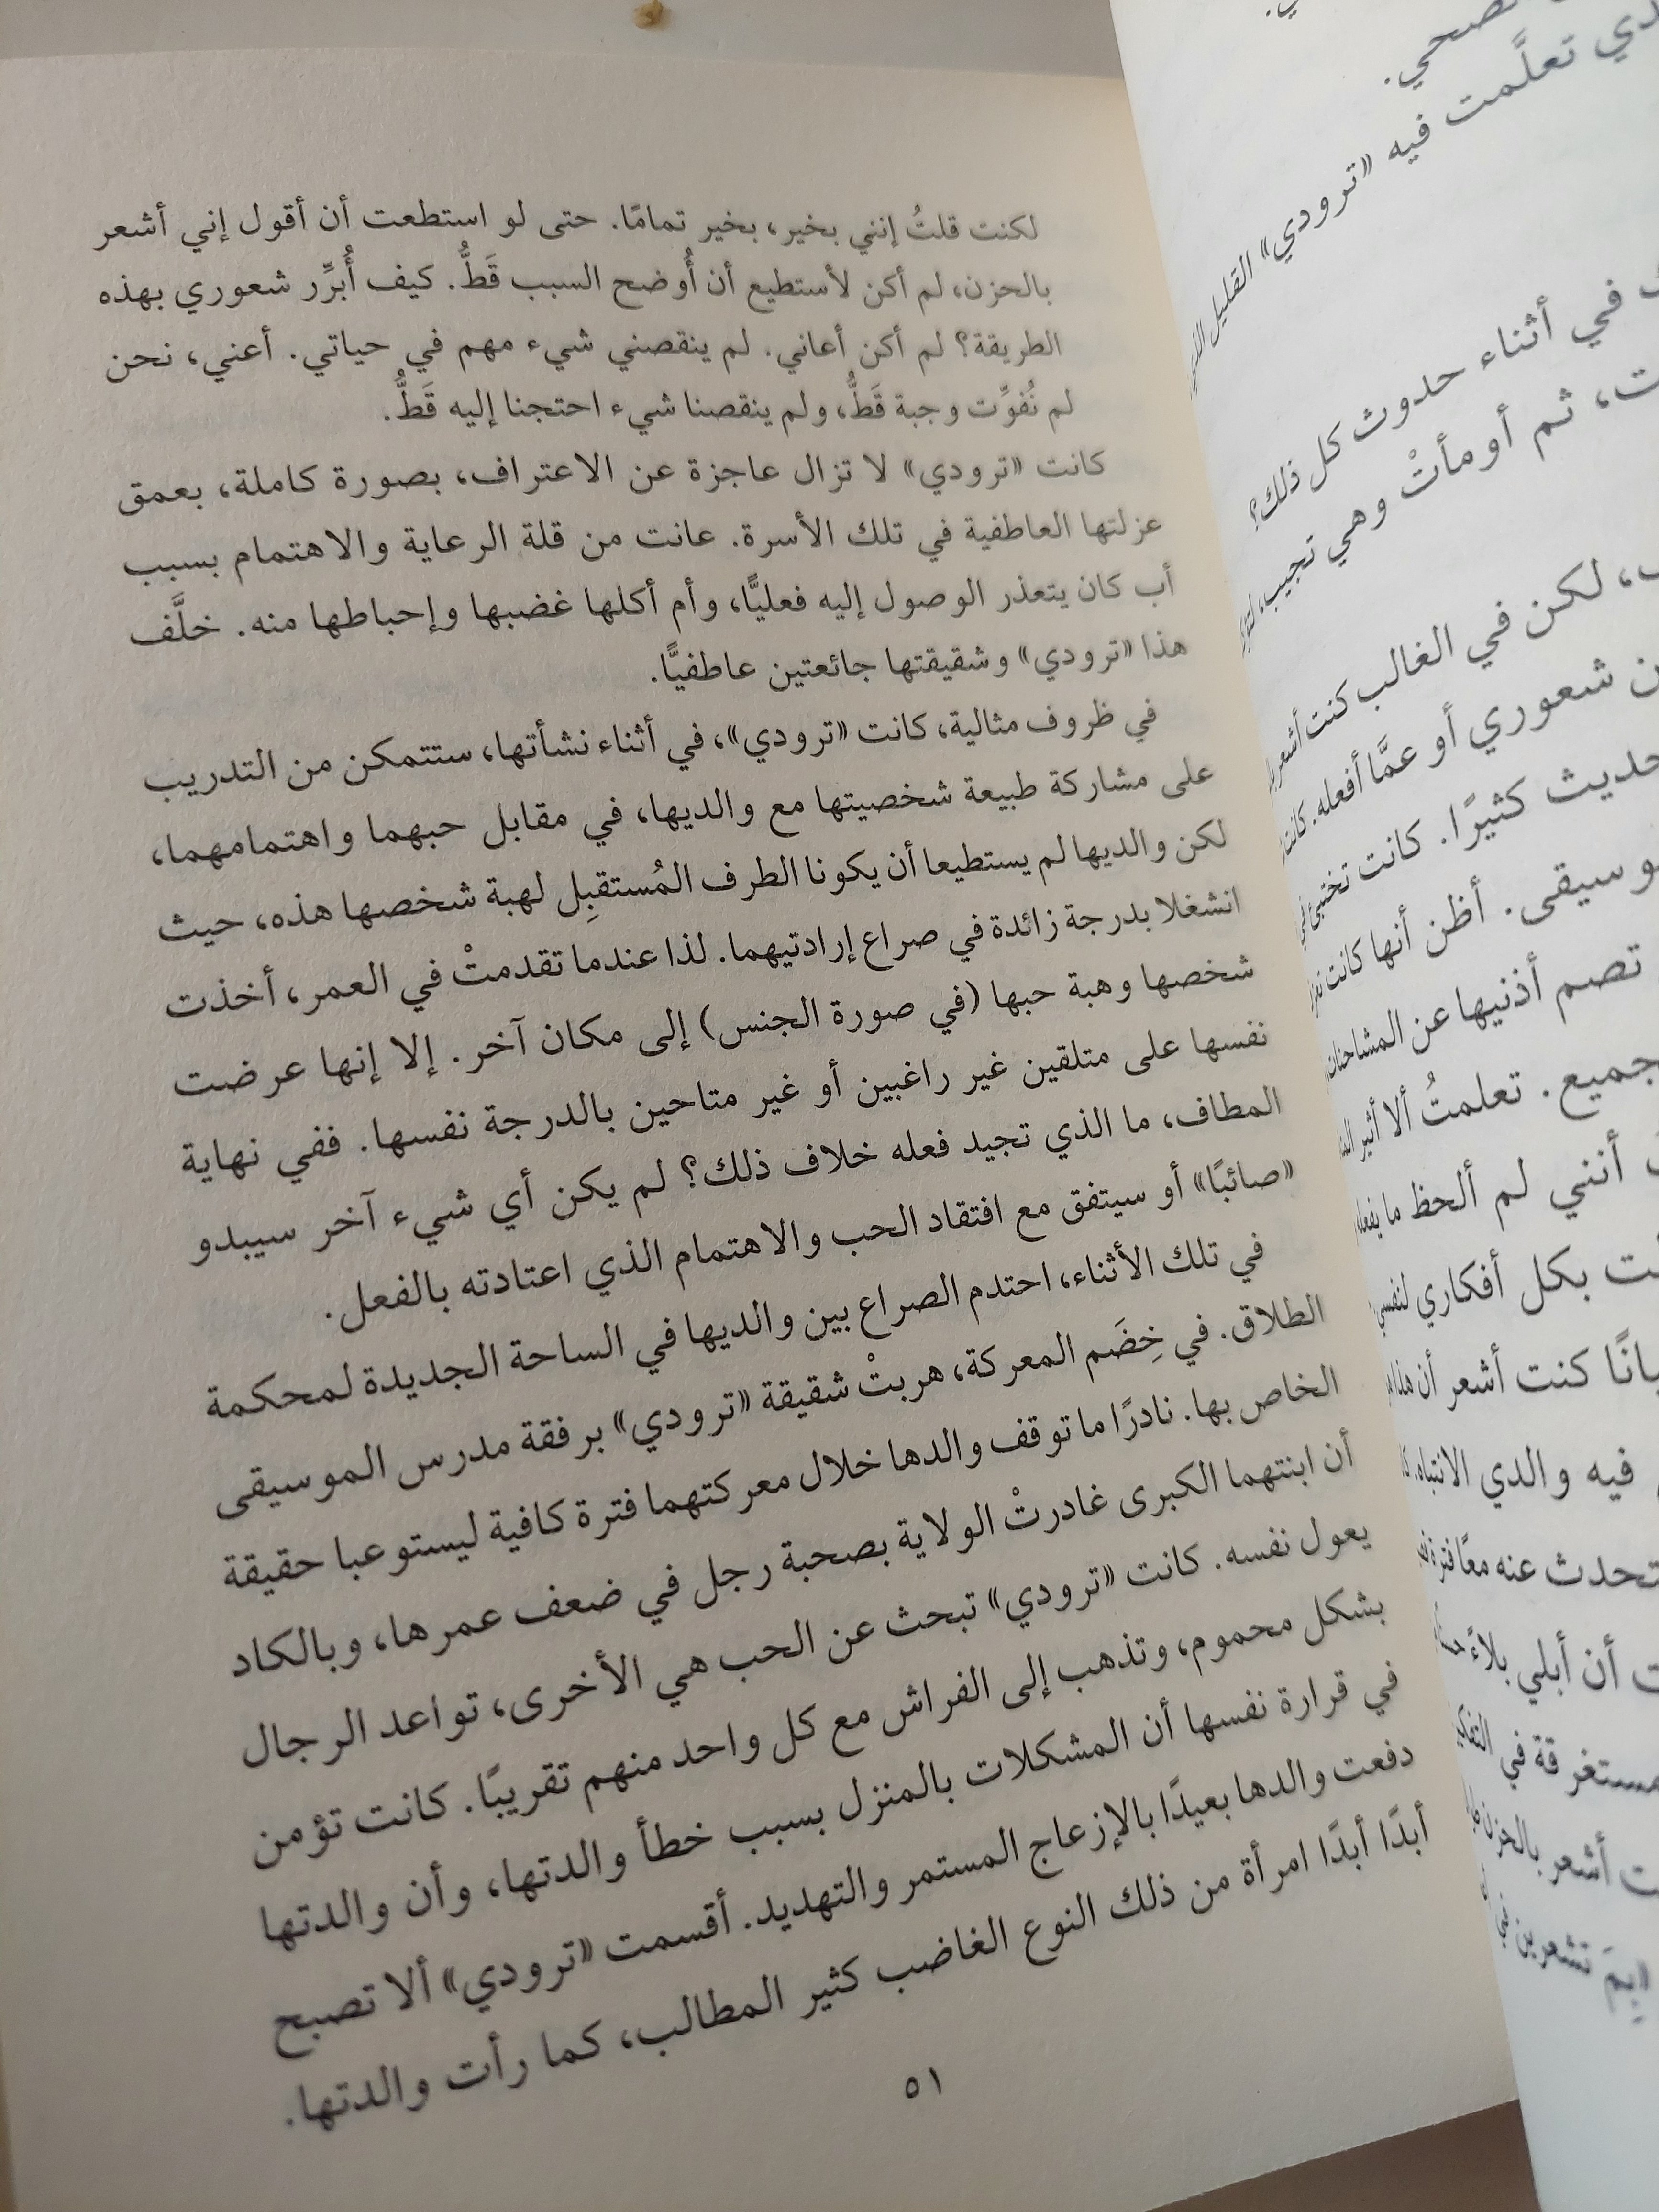 لكنت قلتُ إنني بخير، بخير تمامًا. حتى لو استطعت أن أقول إني أشعر
بالحزن، لم أكن لأستطيع أن أُوضح السبب قَطُّ. كيف أُبرِّر شعوري بهذه
الطريقة؟ لم أكن أعاني. لم ينقصني شيء مهم في حياتي. أعني، نحن
لم نُفوِّت وجبة قَطُّ، ولم ينقصنا شيء احتجنا إليه قَطُّ.
كانت «ترودي» لا تزال عاجزة عن الاعتراف، بصورة كاملة، بعمق
عزلتها العاطفية في تلك الأسرة. عانت من قلة الرعاية والاهتمام بسبب
أب كان يتعذر الوصول إليه فعليًّا، وأم أكلها غضبها وإحباطها منه. خلَّف
هذا «ترودي» وشقيقتها جائعتين عاطفيًّا.
في ظروف مثالية، كانت «ترودي»، في أثناء نشأتها، ستتمكن من التدريب
على مشاركة طبيعة شخصيتها مع والديها، في مقابل حبهما واهتمامهما،
لكن والديها لم يستطيعا أن يكونا الطرف المُستقبِل لهبة شخصها هذه، حيث
انشغلا بدرجة زائدة في صراع إرادتيهما. لذا عندما تقدمتْ في العمر، أخذت
شخصها وهبة حبها (في صورة الجنس) إلى مكان آخر. إلا إنها عرضت
نفسها على متلقين غير راغبين أو غير متاحين بالدرجة نفسها. ففي نهاية
المطاف، ما الذي تجيد فعله خلاف ذلك؟ لم يكن أي شيء آخر سيبدو
«صائبًا» أو سيتفق مع افتقاد الحب والاهتمام الذي اعتادته بالفعل.
في تلك الأثناء، احتدم الصراع بين والديها في الساحة الجديدة لمحكمة
الطلاق. في خِضَم المعركة، هربتْ شقيقة «ترودي» برفقة مدرس الموسيقى
الخاص بها. نادرًا ما توقف والدها خلال معركتهما فترة كافية ليستوعبا حقيقة
أن ابنتهما الكبرى غادرتْ الولاية بصحبة رجل في ضعف عمرها، وبالكاد
يعول نفسه. كانت «ترودي» تبحث عن الحب هي الأخرى، تواعد الرجال
بشكل محموم، وتذهب إلى الفراش مع كل واحد منهم تقريبًا. كانت تؤمن
في قرارة نفسها أن المشكلات بالمنزل بسبب خطأ والدتها، وأن والدتها
دفعت والدها بعيدًا بالإزعاج المستمر والتهديد. أقسمت «ترودي» ألا تصبح
أبدًا أبدًا امرأة من ذلك النوع الغاضب كثير المطالب، كما رأت والدتها.
٥١
تعلَّمت فيه «ترودي» القليل
في أثناء حدوث كل ذلك؟
ثم أومأتْ وهي تجيب
لكن في الغالب كنت
شعوري أو عمَّا أفعله. كانت
كثيرًا. كانت تختبئ
أظن أنها كانت
تصم أذنيها عن المشاحنات
تعلمتُ ألا أثير
أنني لم ألحظ ما
بكل أفكاري لنفسي
كنت أشعر أن
فيه والدي الانتباه.
عنه معًا
أن أبلي بلاءً
في
أشعر بالحزن
«بِمَ تشعرين